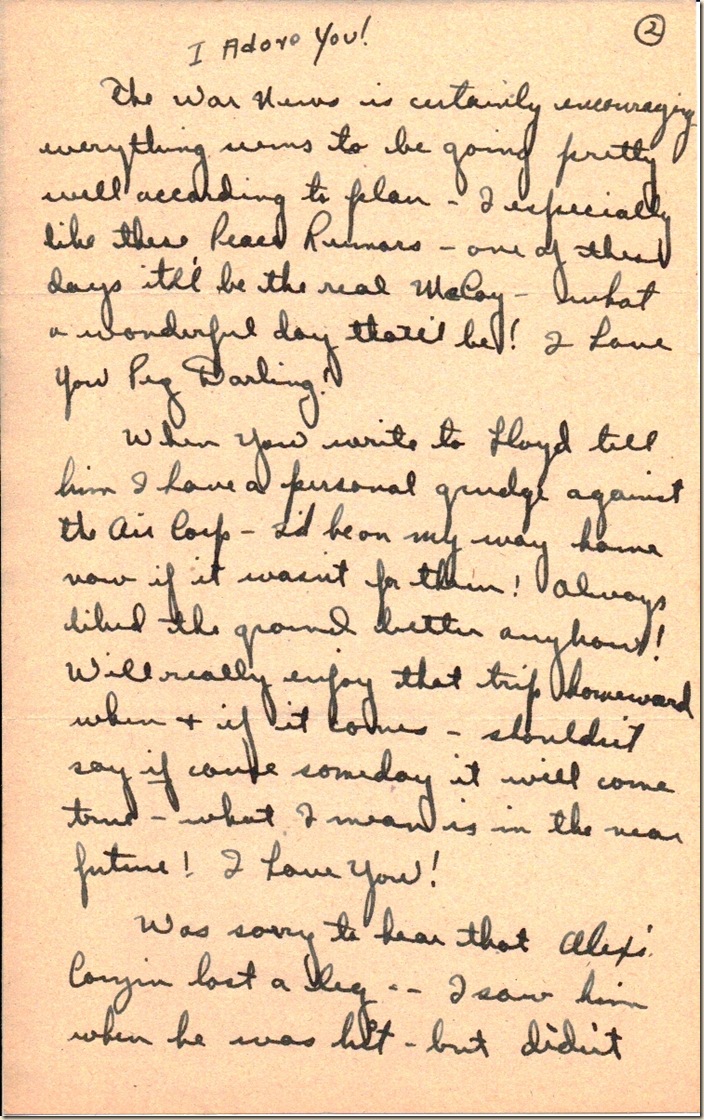 2
I Adore You!
The War News is certainly encouraging
everything seems to be going pretty
well according to plan - I especially
like these Peace Rumors - one of these
days it'll be the real McCoy - what
a wonderful day that'll be! I Love
You Peg Darling!
When you write to Lloyd tell
him I have a personal grudge against
the Air Corp - I'd be on my way home
now if it wasn't for them! Always
liked the ground better anyhow!
Will really enjoy that trip homeward
when + if it comes - shouldn't
say if cause someday it will come
true - what I mean is in the near
future! I Love You!
Was sorry to hear that Alex's
Cousin lost a leg -- I saw him
when he was hit - but didn't